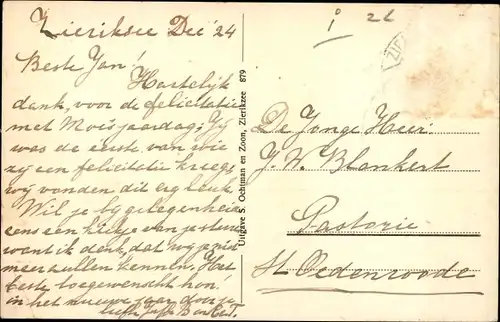 Zieriksee Dec '24
Beste Jan!
Hartelijk
dank, voor de felicitatie
met Moe's jaardag; Jij
was de eerste van wie
zij een felicitatie kreeg,
wij vonden dit erg leuk.
Wil je bij gelegenheid
eens een kiekje van je sturen
want ik denk, dat wij je niet
meer zullen kennen. Het
beste toegewenscht hoor!
in het nieuwe jaar door je
Uitgave S. Ochtman en Zoon, Zierikzee 879
i 22
ZIE
De Jonge Heer.
J. W. Blankert
Pastorie
St Oedenroode